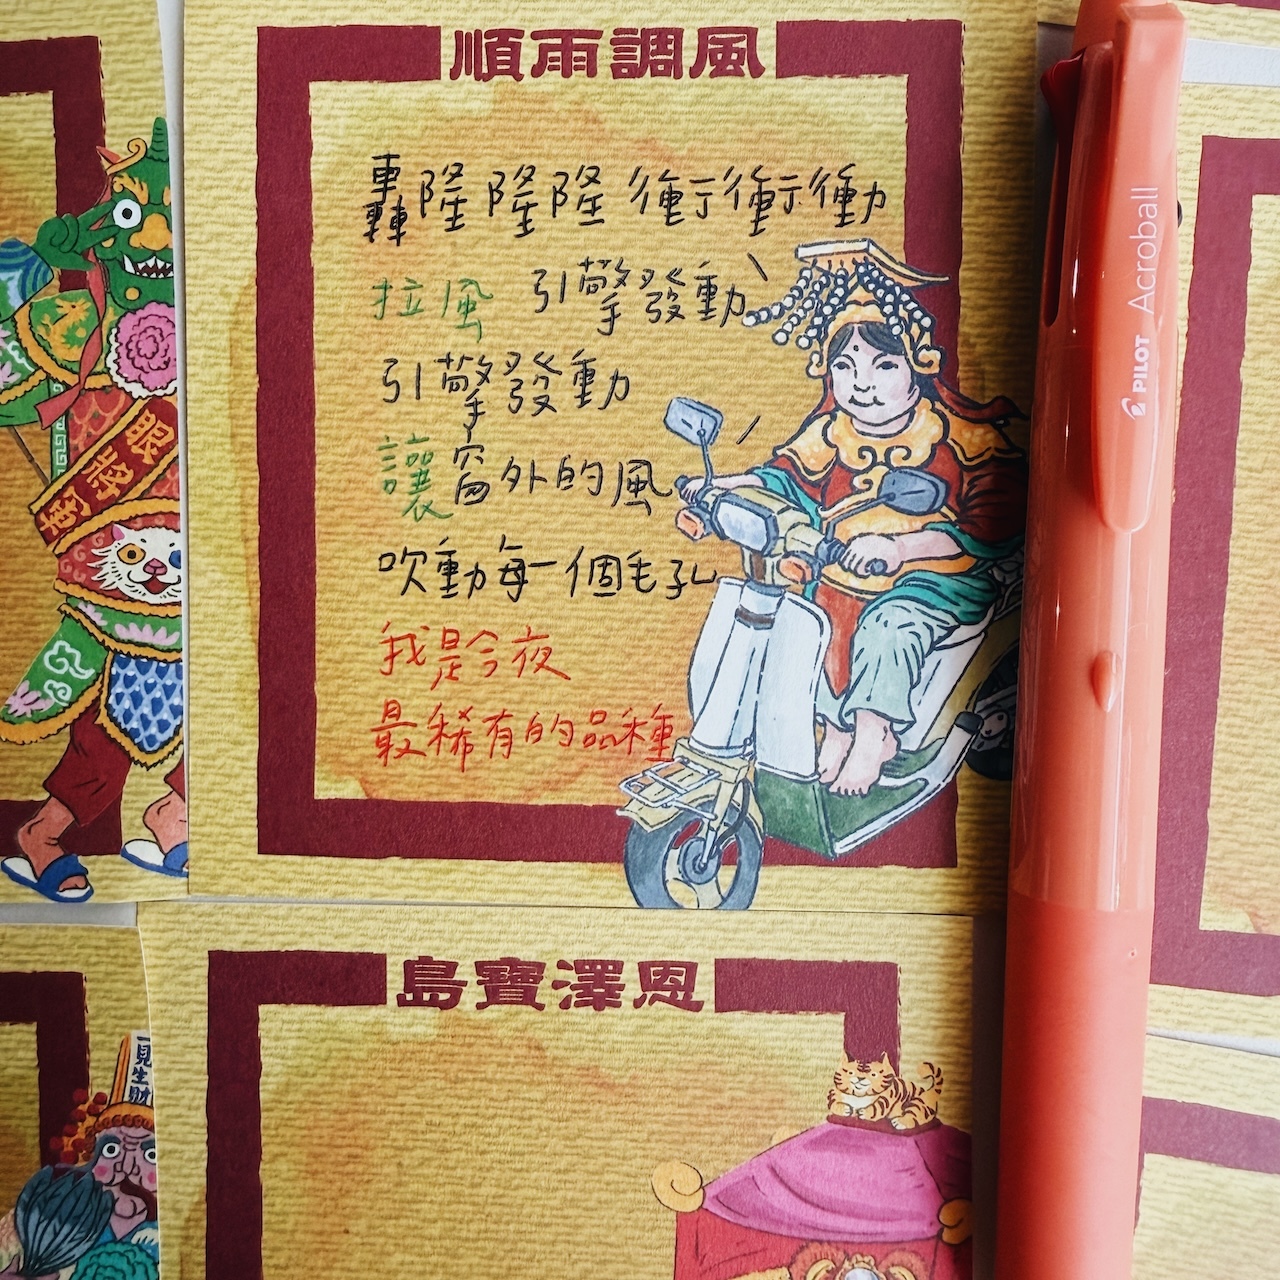 順雨調風
轟隆隆隆衝衝衝動
拉風 引擎發動
引擎發動
讓窗外的風
吹動每一個毛孔
我是今夜
最稀有的品種
PILOT Acroball
眼將軍
島寶澤恩
一見生財